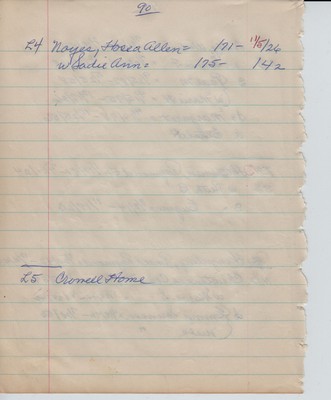 90
L4 Noyes, Hosea Allen = 171- 11/5/26
w Sadie Ann = 175- 142
L5 Crowell Home